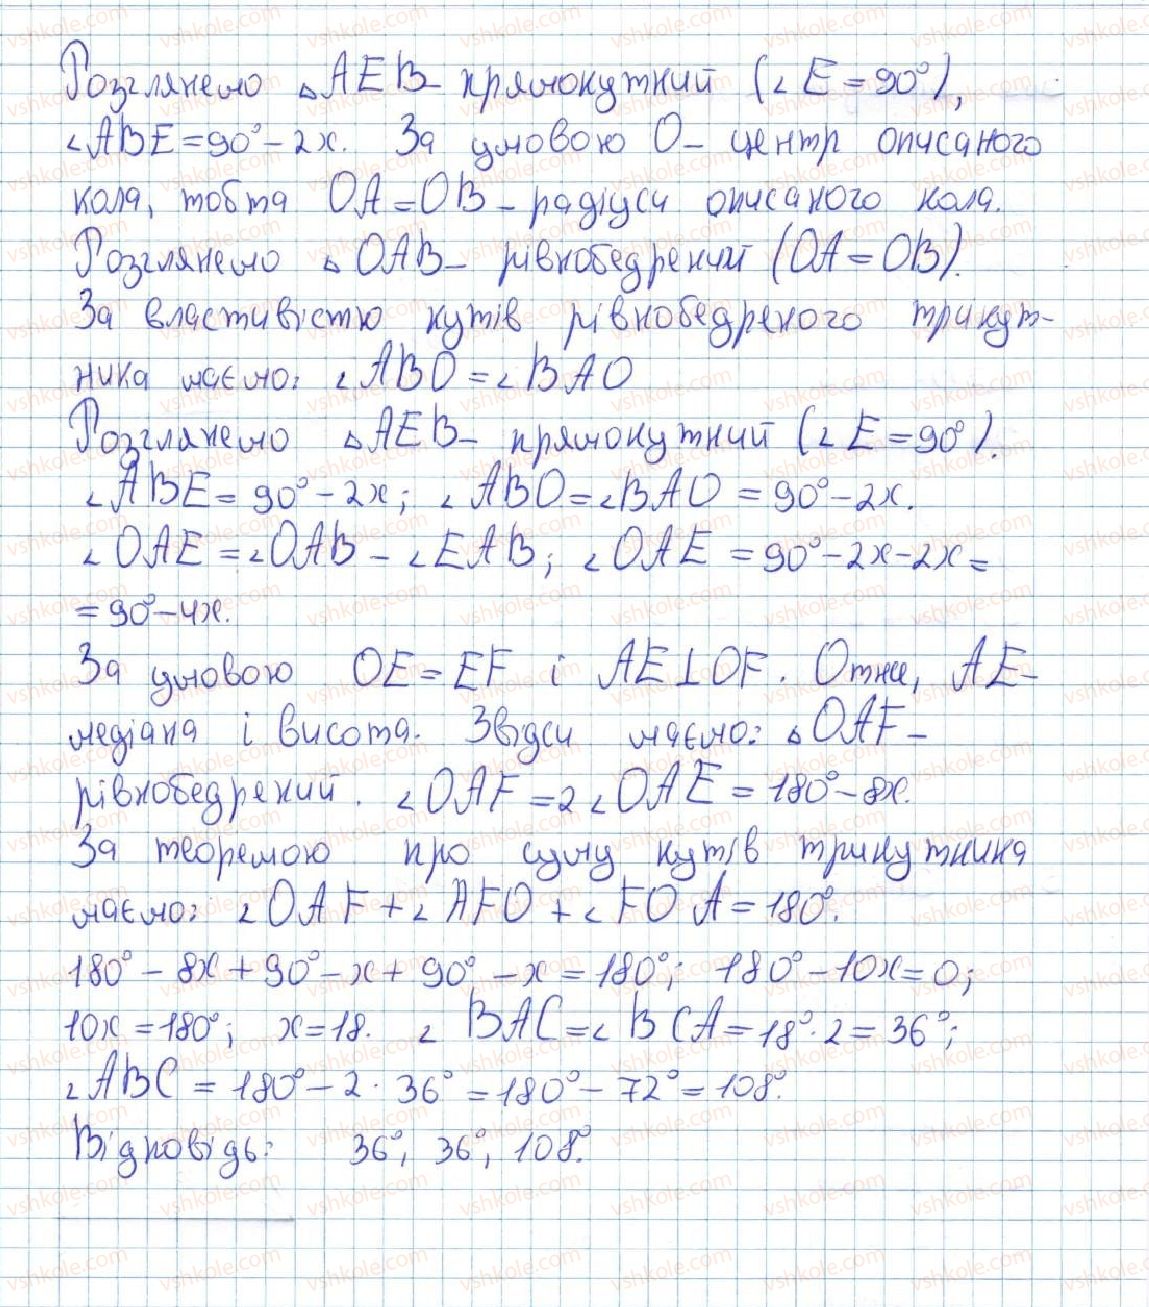 Розглянемо △AEB – прямокутний (∠E = 90°),
∠ABE = 90° – 2x. За умовою O – центр описаного
кола, тобто OA = OB – радіуси описаного кола.
Розглянемо △OAB – рівнобедрений (OA = OB).
За властивістю кутів рівнобедреного трикут-
ника маємо: ∠ABO = ∠BAO
Розглянемо △AEB – прямокутний (∠E = 90°).
∠ABE = 90° – 2x; ∠ABO = ∠BAO = 90° – 2x.
∠OAE = ∠OAB – ∠EAB; ∠OAE = 90° – 2x – 2x =
= 90° – 4x.
За умовою OE = EF і AE ⊥ OF. Отже, AE –
медіана і висота. Звідси маємо: △OAF –
рівнобедрений. ∠OAF = 2∠OAE = 180° – 8x.
За теоремою про суму кутів трикутника
маємо: ∠OAF + ∠AFO + ∠FOA = 180°.
180° – 8x + 90° – x + 90° – x = 180°; 180° – 10x = 0;
10x = 180°; x = 18. ∠BAC = ∠BCA = 18° · 2 = 36°;
∠ABC = 180° – 2 · 36° = 180° – 72° = 108°.
Відповідь: 36°, 36°, 108°.